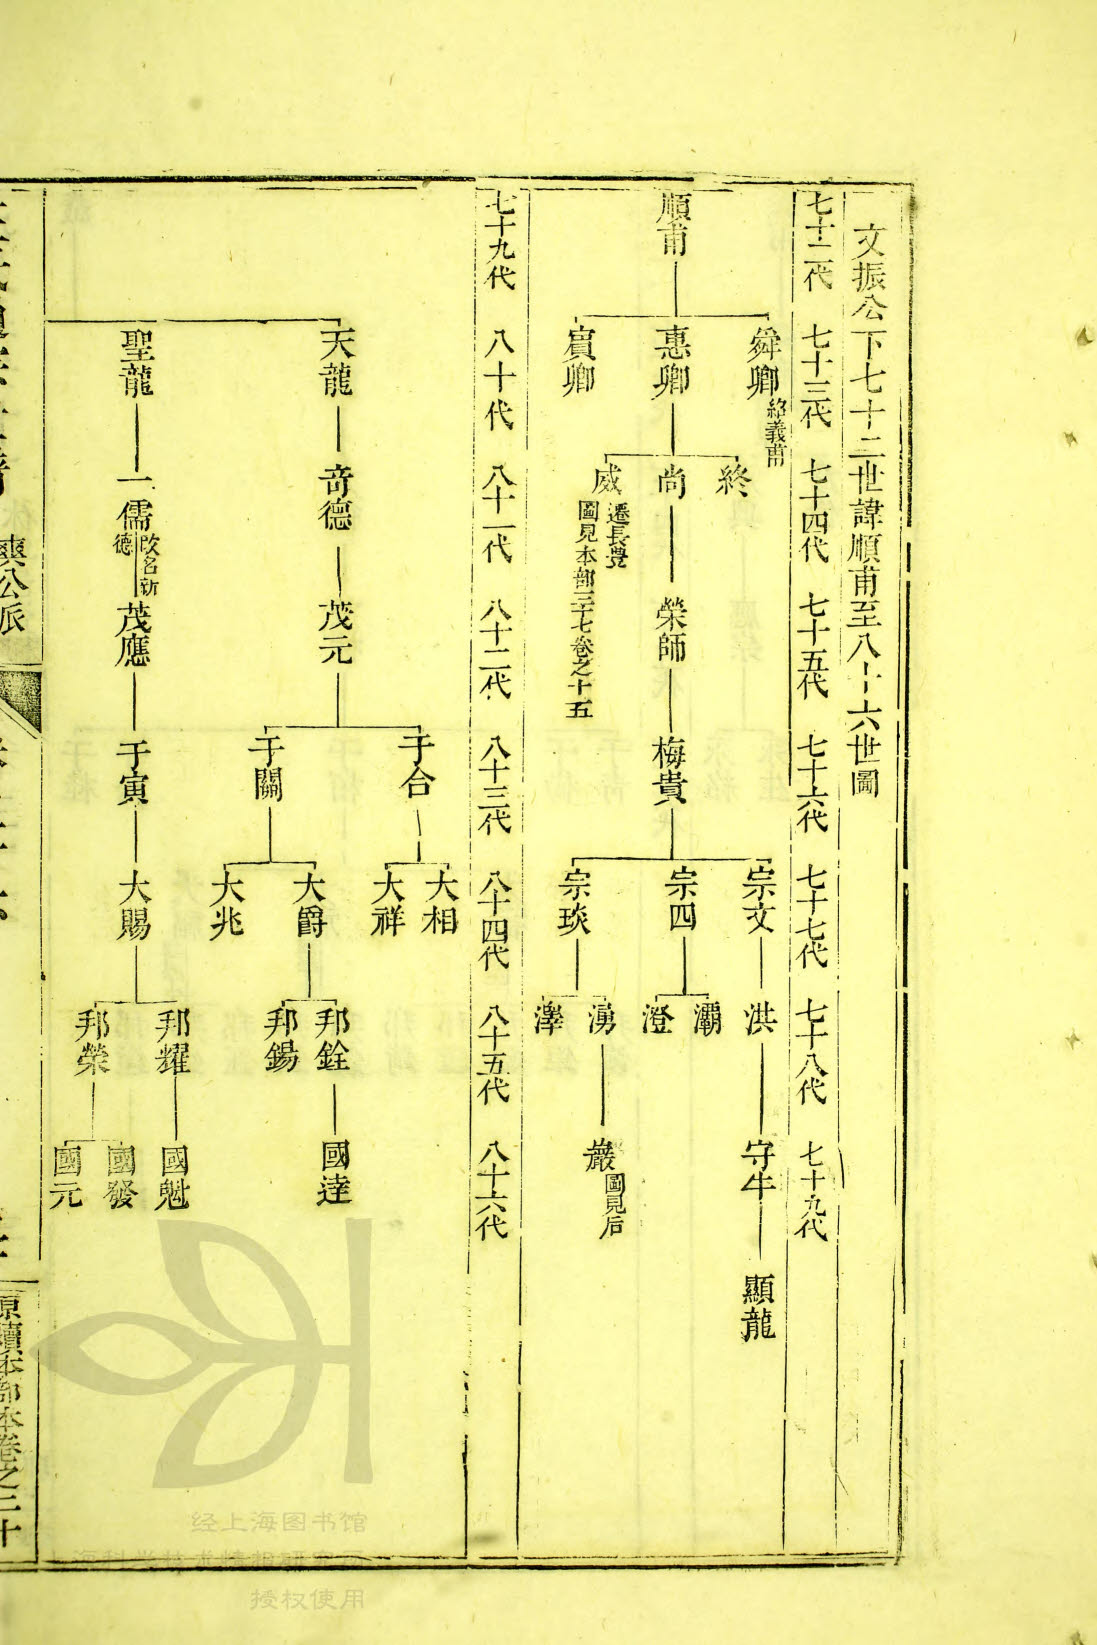 文振公下七十二世諱順甫至八十六世圖
七十二代 七十三代 七十四代 七十五代 七十六代 七十七代 七十八代 七十九代
順甫
舜卿 紹義甫
惠卿
賓卿
終
尚
威 遷長豊
圖見本部三十七卷之十五
榮師
梅貴
宗文
宗四
宗琰
洪
灞
澄
湧
澤
守牛
巖 圖見后
顯龍
七十九代 八十代 八十一代 八十二代 八十三代 八十四代 八十五代 八十六代
天龍
聖龍
奇德
一儒 改名新
德
茂元
茂應
于合
于關
于寅
大相
大祥
大爵
大兆
大賜
邦銓
邦錫
邦耀
邦榮
國達
國魁
國發
國元
爽公派
原續本部本卷之二十
经上海图书馆
上海科学技术情报研究所
授权使用